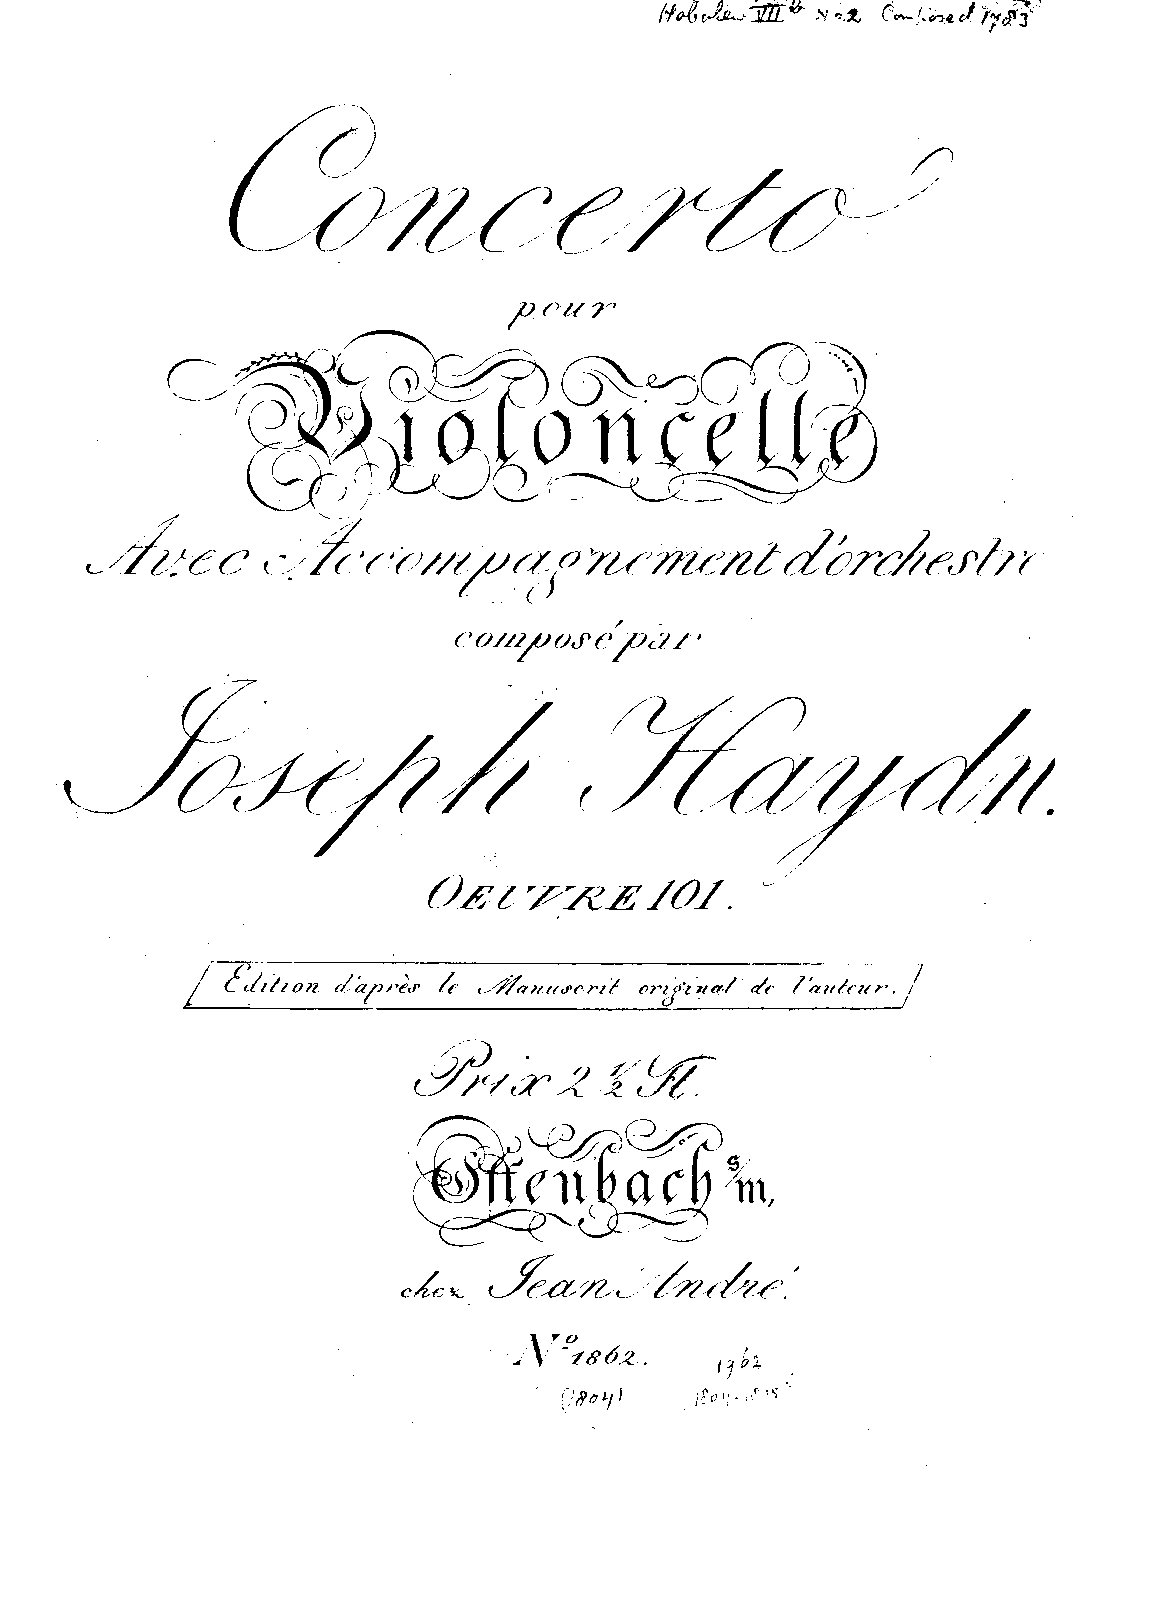 Hoboken VIIb No 2 Composed 1783
Concerto
pour
Violoncelle
Avec Accompagnement d'orchestre
composé par
Joseph Haydn.
OEUVRE 101.
Edition d'après le Manuscrit original de l'auteur.
Prix 2 1/2 Fl.
Offenbach s/m,
chez Jean André.
No 1862. 1362
(1804)